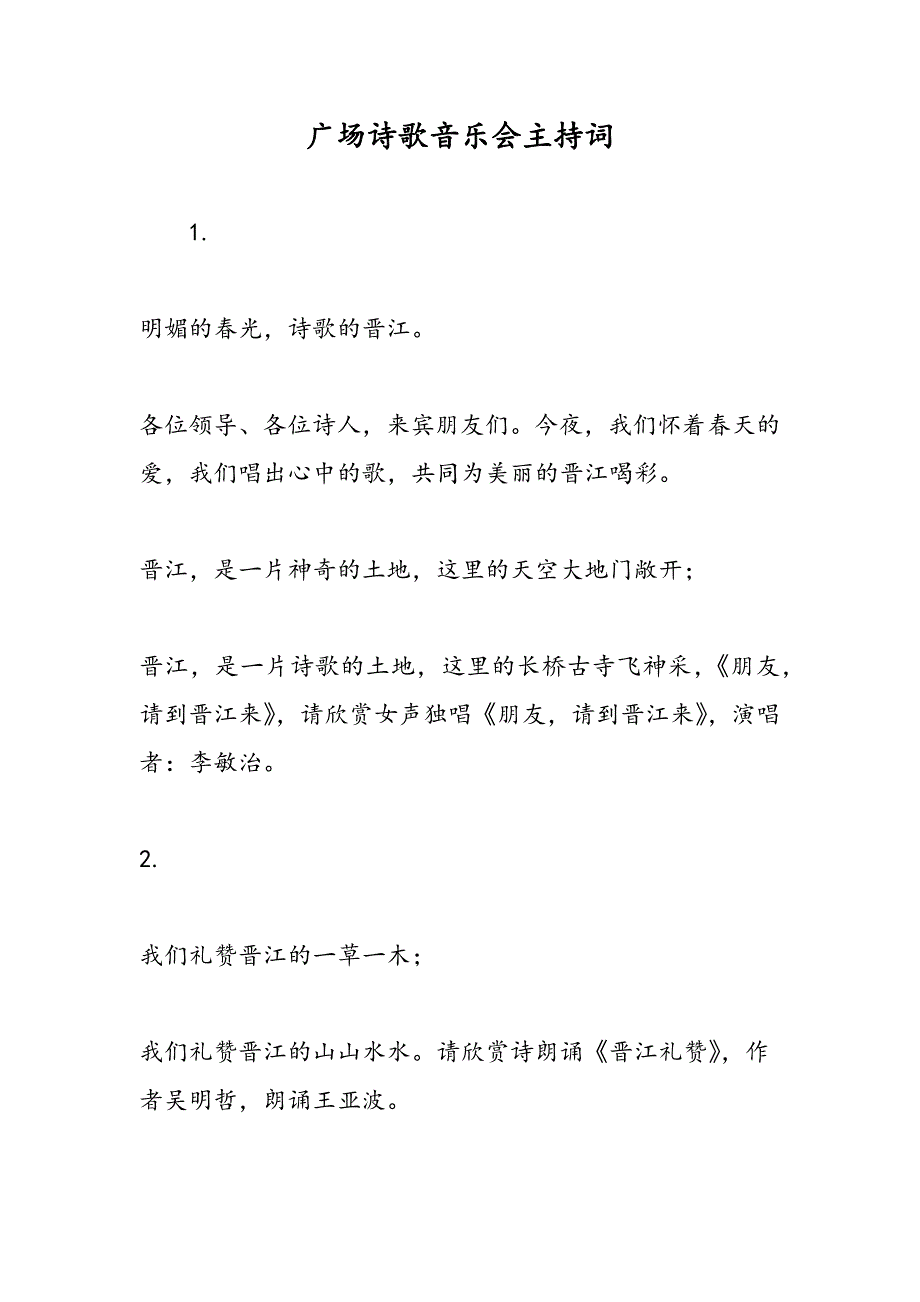 广场诗歌音乐会主持词
1.
明媚的春光，诗歌的晋江。
各位领导、各位诗人，来宾朋友们。今夜，我们怀着春天的
爱，我们唱出心中的歌，共同为美丽的晋江喝彩。
晋江，是一片神奇的土地，这里的天空大地门敞开；
晋江，是一片诗歌的土地，这里的长桥古寺飞神采，《朋友，
请到晋江来》，请欣赏女声独唱《朋友，请到晋江来》，演唱
者：李敏治。
2.
我们礼赞晋江的一草一木；
我们礼赞晋江的山山水水。请欣赏诗朗诵《晋江礼赞》，作
者吴明哲，朗诵王亚波。